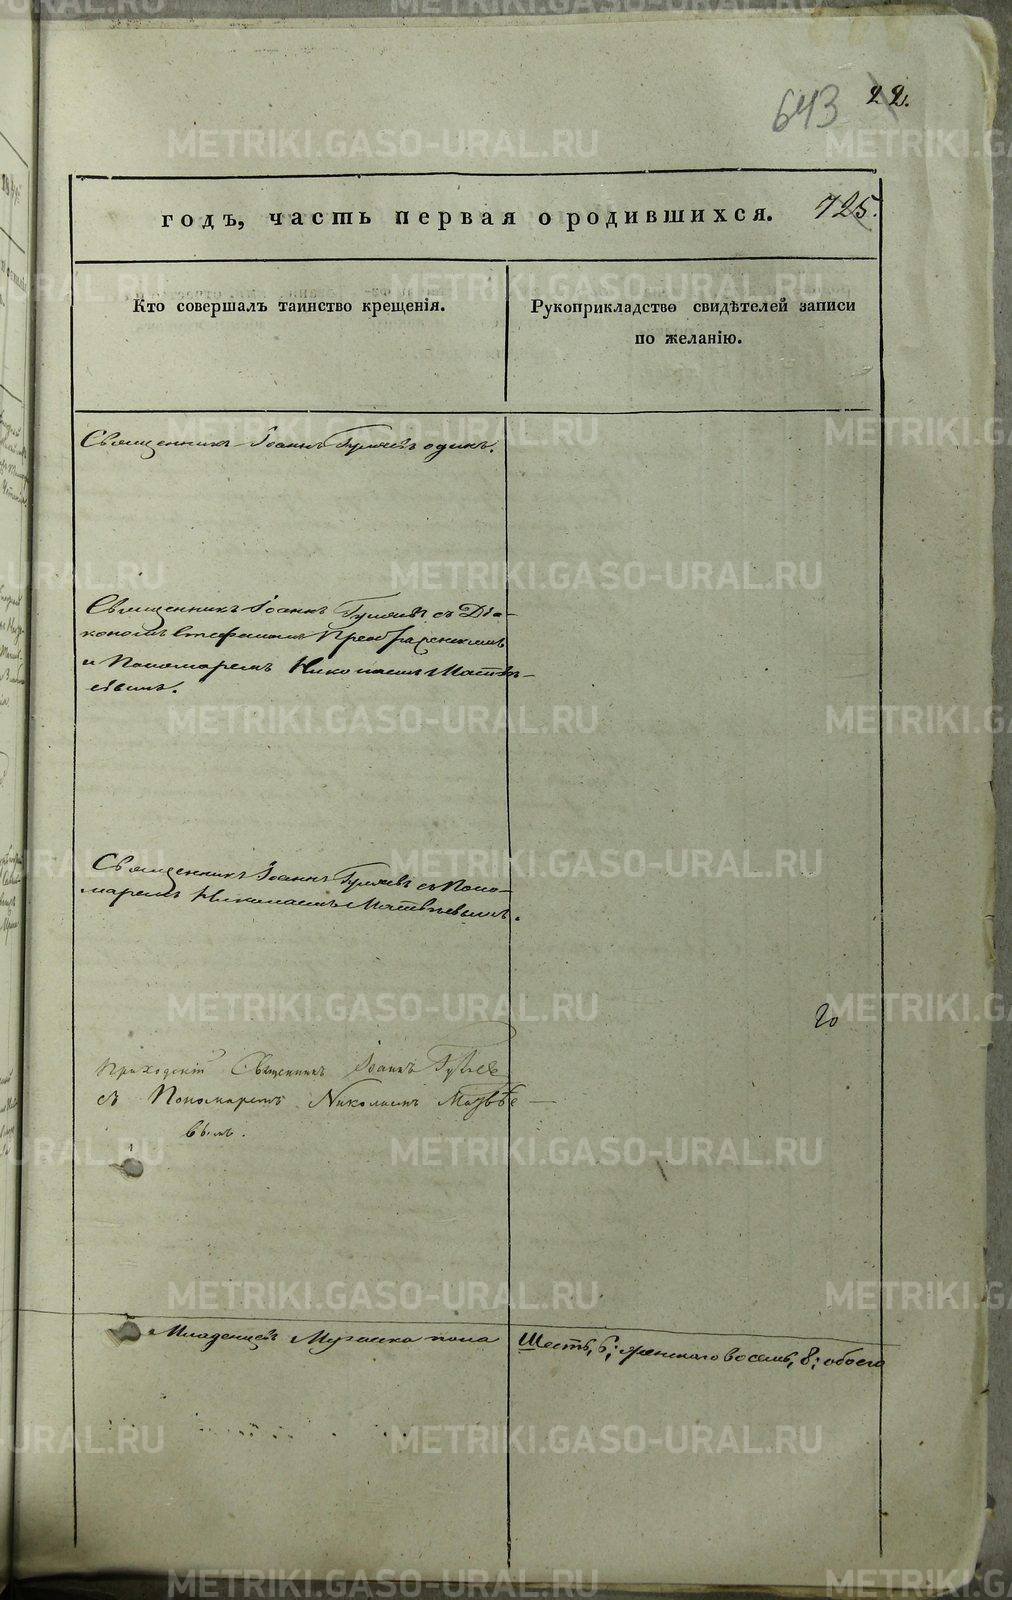 643 22.
годъ, часть первая о родившихся. 725.
Кто совершалъ таинство крещенія.
Рукоприкладство свидѣтелей записи
по желанію.
Священникъ Іоаннъ Гуляевъ одинъ.
Священникъ Іоаннъ Гуляевъ съ Діа-
кономъ Стефаномъ Преображенскимъ
и Пономаремъ Николаемъ Матвѣ-
евымъ.
Священникъ Іоаннъ Гуляевъ съ Поно-
маремъ Николаемъ Матвѣевымъ.
20
Приходскій Священникъ Іоаннъ Гуляев
съ Пономаремъ Николаемъ Матвѣе-
вымъ.
Младенцевъ Мужеска пола Шесть, 6; женскаго восемь, 8; обоего
METRIKI.GASO-URAL.RU